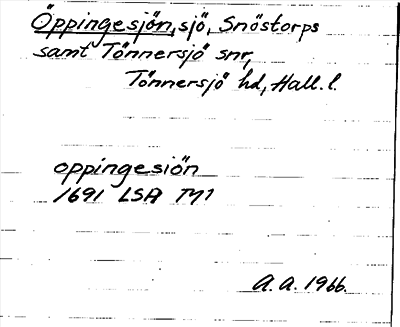 Öppingesjön, sjö, Snöstorps
samt Tönnersjö snr,
Tönnersjö hd, Hall. l.
oppingesiön
1691 LSA TY1
A. A. 1966.